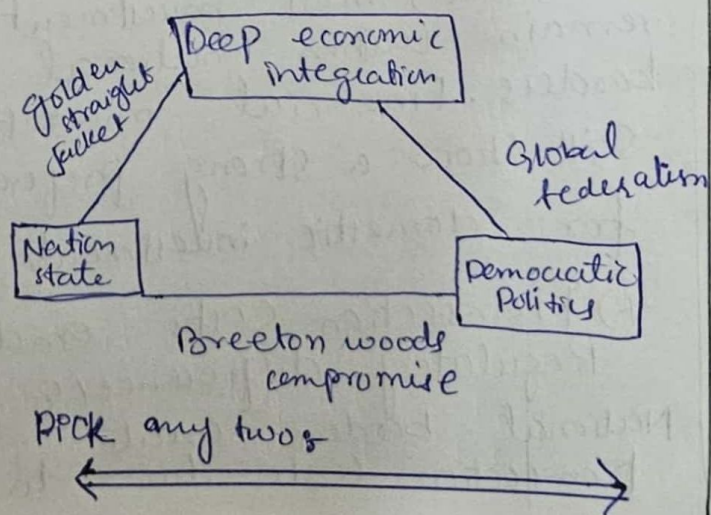 Deep economic
integration
golden
straight
Jacket
Global
federalism
Nation
state
Democratic
Politics
Breeton woods
compromise
Pick any two